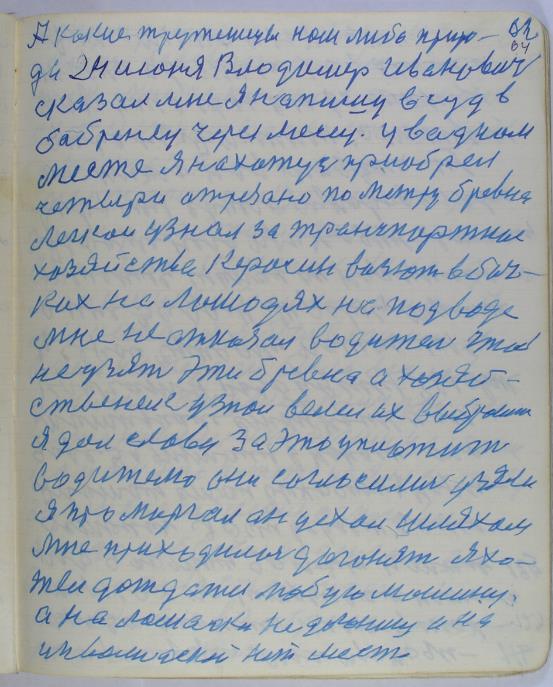 А какие труженицы наш либо приро-
ды 24 июня Владимер Иванович
сказал мне я напишу в суд в
через месец. у ва дном
месте я нахожуц приобрел
четыри отрезано по метру бревна
узнал за транспортное
хозяйства Керосин возют в боч-
ках на лошодях на подводе
мне не отказал водител
не узят эти бревна а хозяй-
ственек узнал велел их выбросит
я дал слово за это уплотит
водителю они согласилис узяли
я проморгал ан уехал шляхом
мне приходился догонят я хо-
тел дождатса любую машину.
а на лошадки не догониш и на
нет места
64